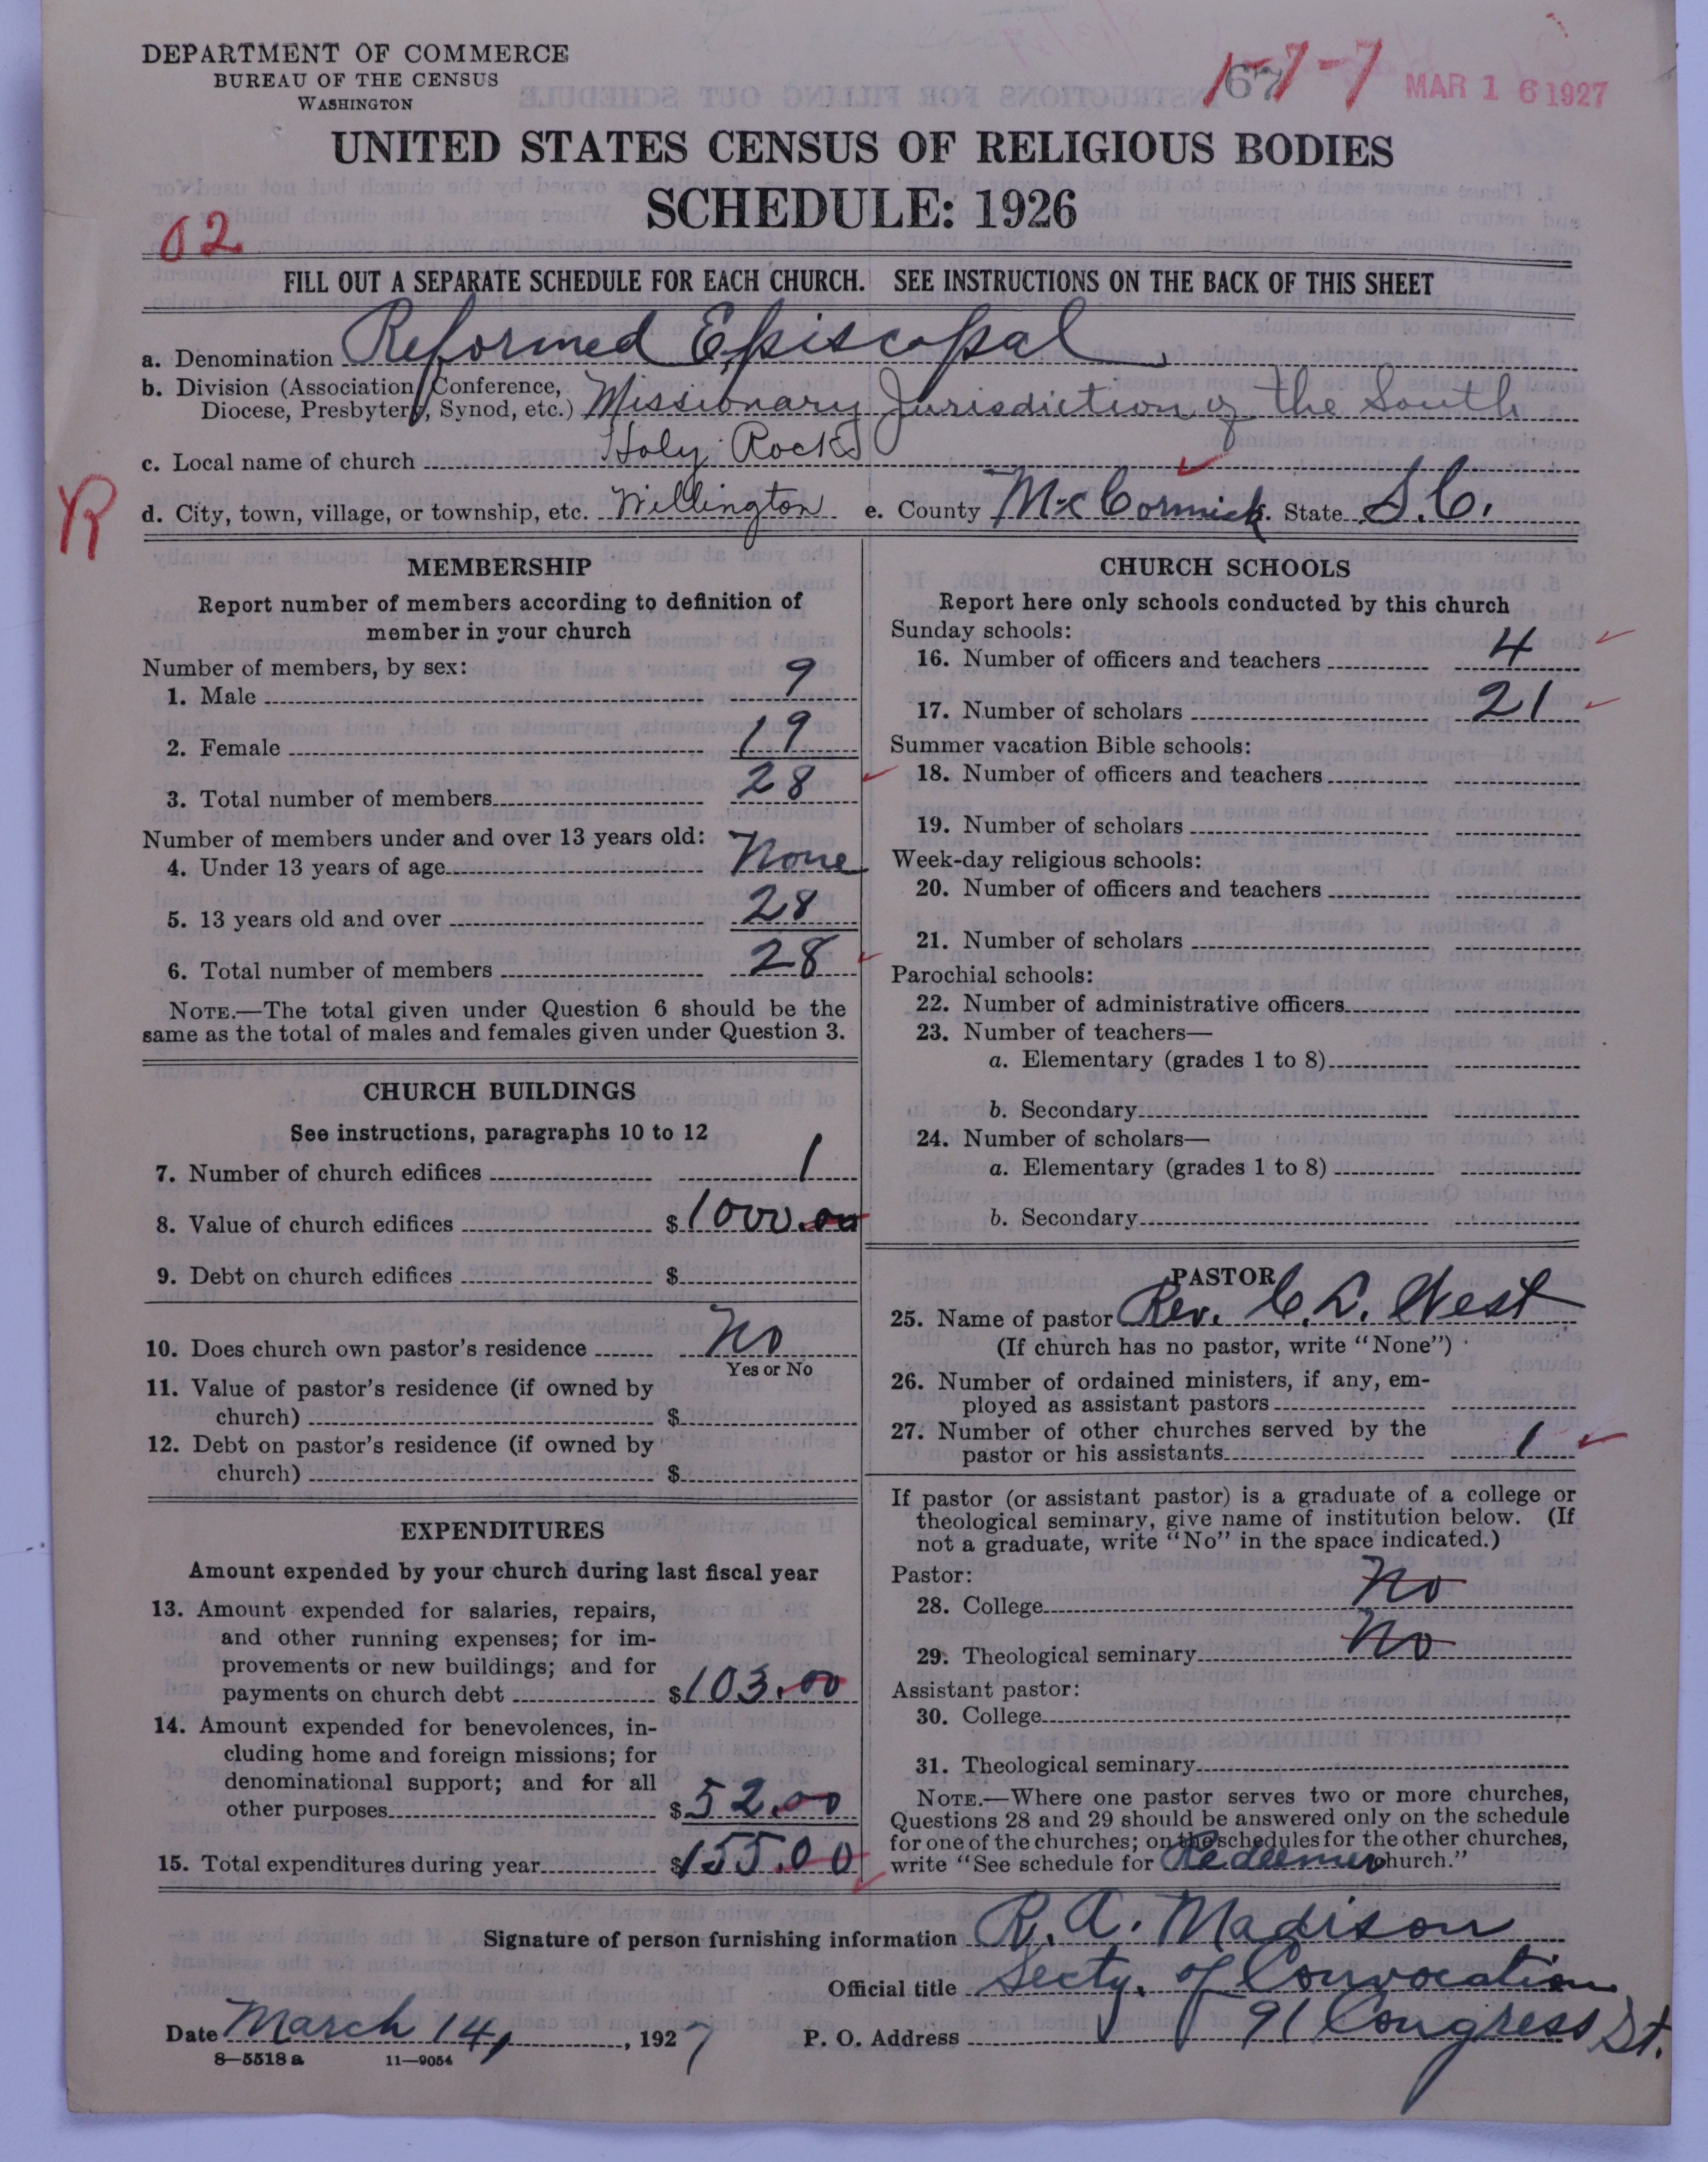 DEPARTMENT OF COMMERCE
BUREAU OF THE CENSUS
WASHINGTON
1-7-7
67
MAR 16 1927
UNITED STATES CENSUS OF RELIGIOUS BODIES
SCHEDULE: 1926
02
FILL OUT A SEPARATE SCHEDULE FOR EACH CHURCH. SEE INSTRUCTIONS ON THE BACK OF THIS SHEET
a. Denomination Reformed Episcopal
b. Division (Association, Conference,
Diocese, Presbytery, Synod, etc.) Missionary Jurisdiction of the South
c. Local name of church Holy Rocks
R
d. City, town, village, or township, etc. Willington e. County McCormick. State S.C.
MEMBERSHIP
Report number of members according to definition of
member in your church
Number of members, by sex:
1. Male 9
2. Female 19
3. Total number of members 28
Number of members under and over 13 years old:
4. Under 13 years of age None
5. 13 years old and over 28
6. Total number of members 28
NOTE.—The total given under Question 6 should be the
same as the total of males and females given under Question 3.
CHURCH BUILDINGS
See instructions, paragraphs 10 to 12
7. Number of church edifices 1
8. Value of church edifices $1000.00
9. Debt on church edifices $
10. Does church own pastor's residence No
Yes or No
11. Value of pastor's residence (if owned by
church) $
12. Debt on pastor's residence (if owned by
church) $
EXPENDITURES
Amount expended by your church during last fiscal year
13. Amount expended for salaries, repairs,
and other running expenses; for im-
provements or new buildings; and for
payments on church debt $103.00
14. Amount expended for benevolences, in-
cluding home and foreign missions; for
denominational support; and for all
other purposes $52.00
15. Total expenditures during year $155.00
CHURCH SCHOOLS
Report here only schools conducted by this church
Sunday schools:
16. Number of officers and teachers 4
17. Number of scholars 21
Summer vacation Bible schools:
18. Number of officers and teachers
19. Number of scholars
Week-day religious schools:
20. Number of officers and teachers
21. Number of scholars
Parochial schools:
22. Number of administrative officers
23. Number of teachers—
a. Elementary (grades 1 to 8)
b. Secondary
24. Number of scholars—
a. Elementary (grades 1 to 8)
b. Secondary
PASTOR
25. Name of pastor Rev. C. L. West
(If church has no pastor, write "None")
26. Number of ordained ministers, if any, em-
ployed as assistant pastors
27. Number of other churches served by the
pastor or his assistants 1
If pastor (or assistant pastor) is a graduate of a college or
theological seminary, give name of institution below. (If
not a graduate, write "No" in the space indicated.)
Pastor:
28. College No
29. Theological seminary No
Assistant pastor:
30. College
31. Theological seminary
NOTE.—Where one pastor serves two or more churches,
Questions 28 and 29 should be answered only on the schedule
for one of the churches; on the schedules for the other churches,
write "See schedule for Redeemer church."
Signature of person furnishing information R. A. Madison
Official title Secty. of Convocation
Date March 14, 1927 P. O. Address 91 Congress St.
8—5518 a 11—9054